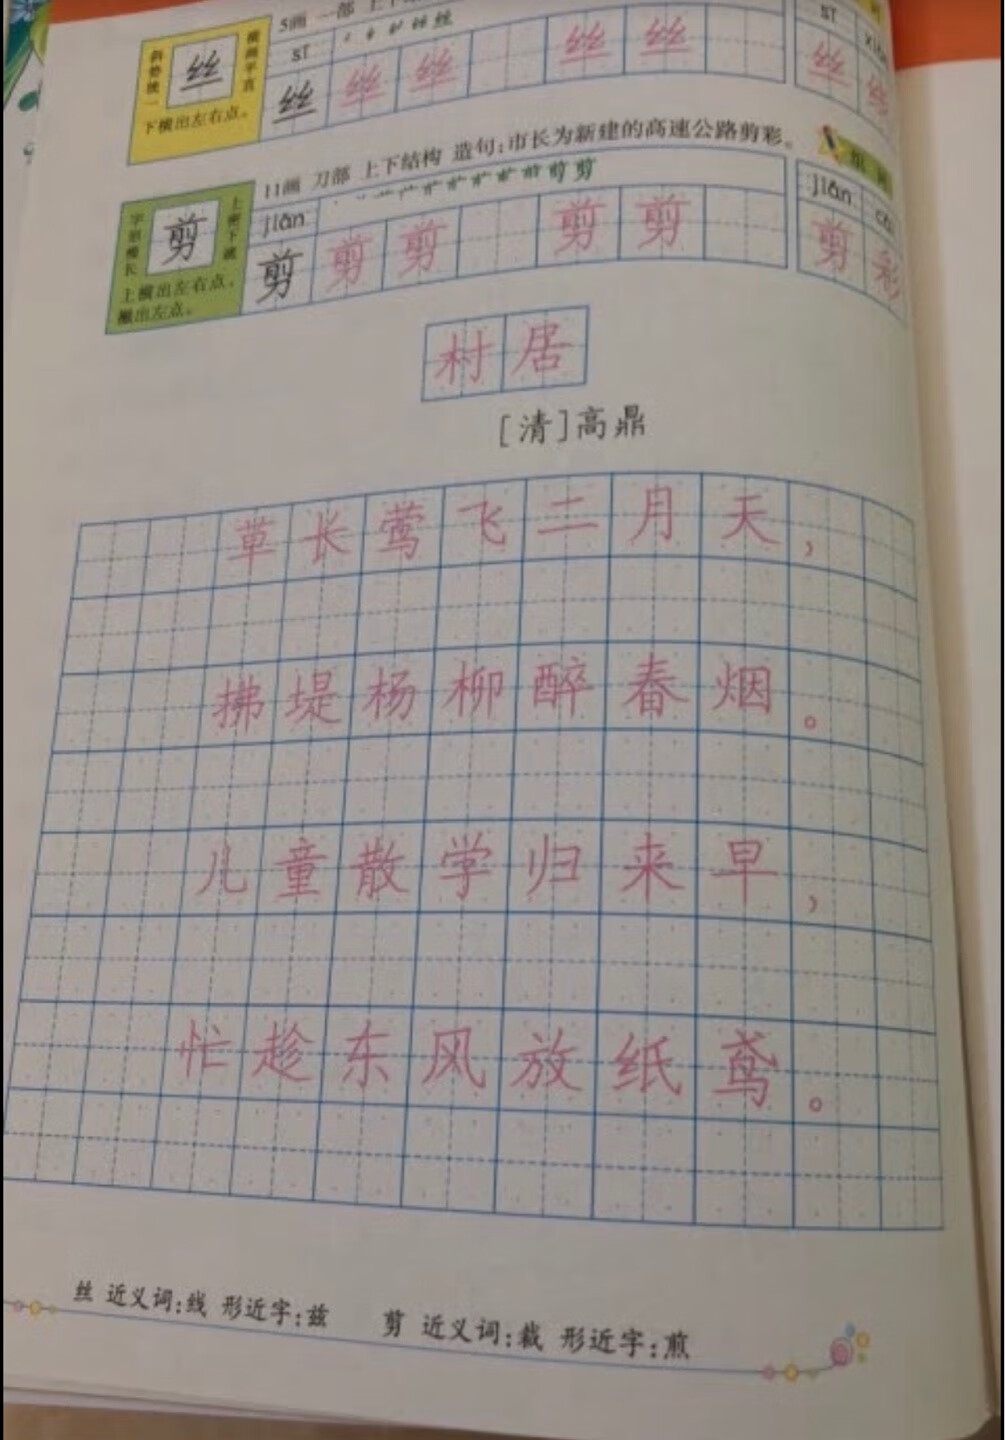 5画 一部 上下结
sī
丝
横画平直
斜势统一
下横出左右点。
丝 丝 丝 丝 丝
sī
丝
11画 刀部 上下结构 造句:市长为新建的高速公路剪彩。
组词
jiǎn
剪
字形修长
上横出左右点,
撇出左点。
剪 剪 剪 剪 剪
jiǎn cǎi
剪 彩
村居
[清]高鼎
草长莺飞二月天,
拂堤杨柳醉春烟。
儿童散学归来早,
忙趁东风放纸鸢。
丝 近义词:线 形近字:兹 剪 近义词:裁 形近字:煎